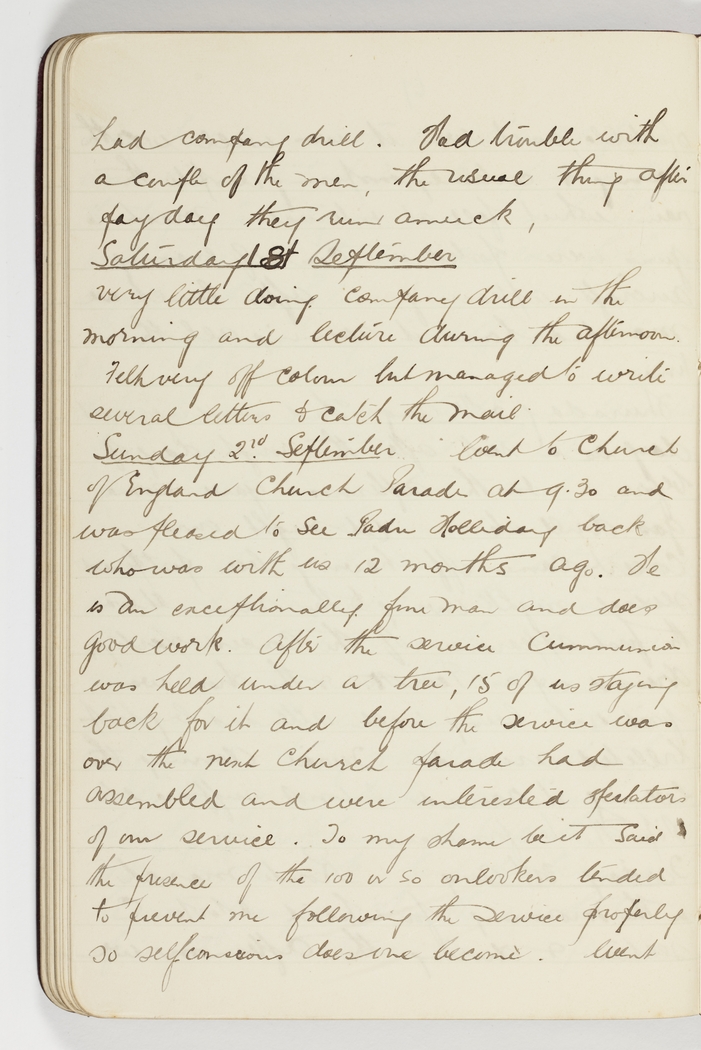 had company drill. Had trouble with
a couple of the men, the usual thing after
pay day they run amuck,
Saturday 1st September
very little doing. Company drill in the
morning and lecture during the afternoon.
Felt very off colour but managed to write
several letters & catch the mail.
Sunday 2nd September. Went to Church
of England Church Parade at 9.30 and
was pleased to see Padre Holliday back
who was with us 12 months ago. He
is an exceptionally fine man and does
good work. After the service Cummunion
was held under a tree, 15 of us staying
back for it and before the service was
over the next Church parade had
assembled and were interested spectators
of our service. To my shame be it said
the presence of the 100 or so onlookers tended
to prevent me following the service properly
so selfconscious does one become. Went